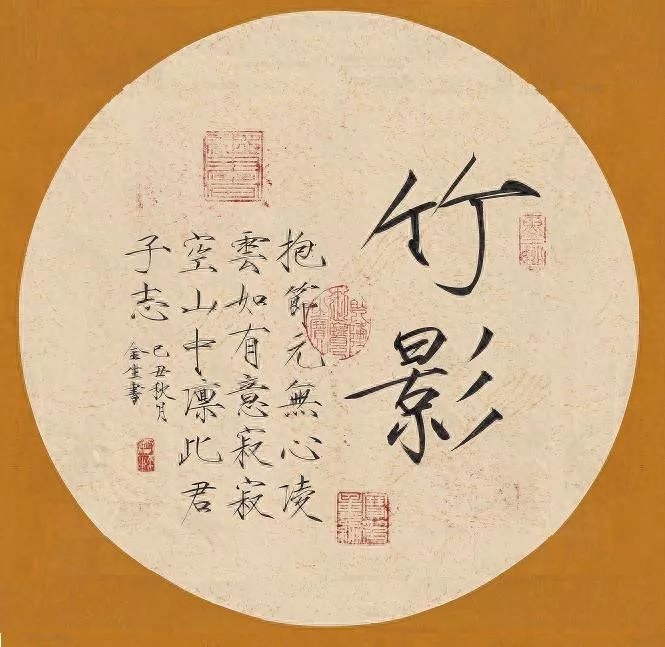 竹影
抱節元無心陵
雲如有意寂寂
空山中凛此君
子志
己丑秋月
書